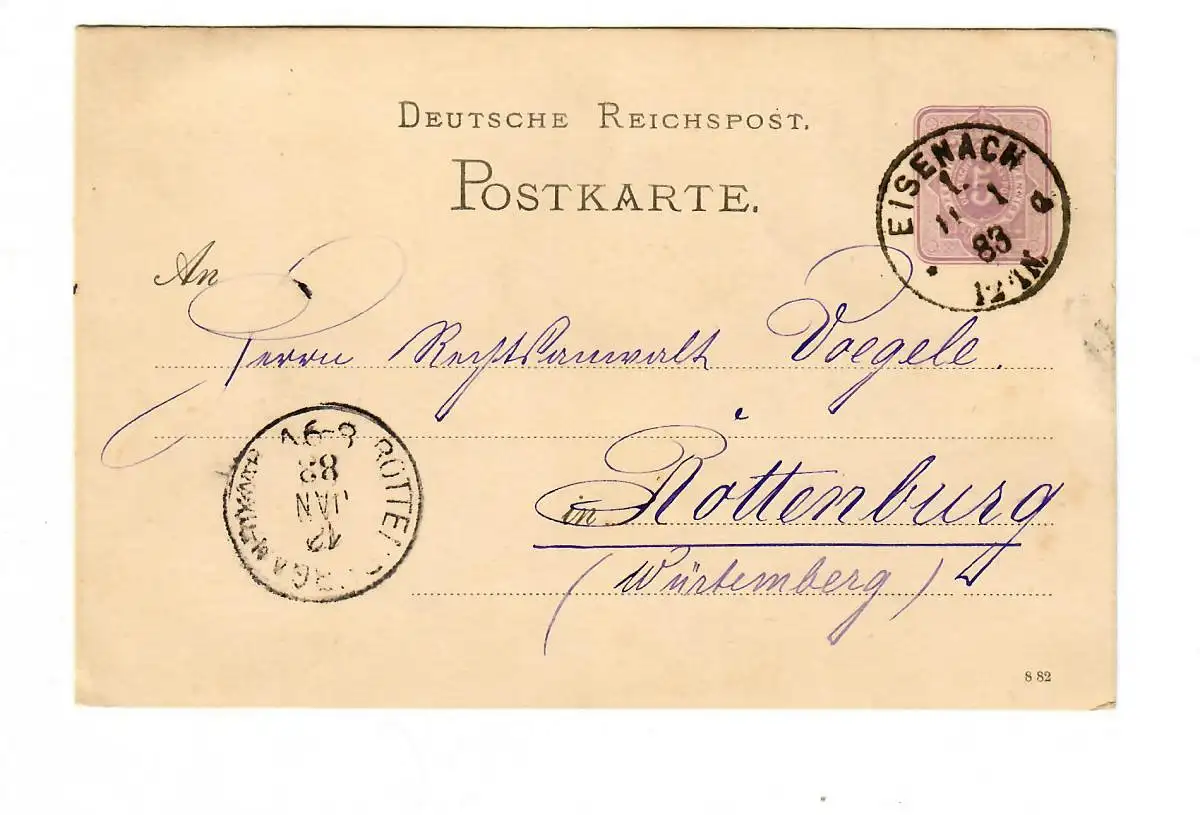 DEUTSCHE REICHSPOST.
POSTKARTE.
5
EISENACH
1.
11 1
83
12-1N.
An
Herrn Rechtsanwalt Voegele.
in Rottenburg
(Würtemberg)
12
JAN
83
8 82